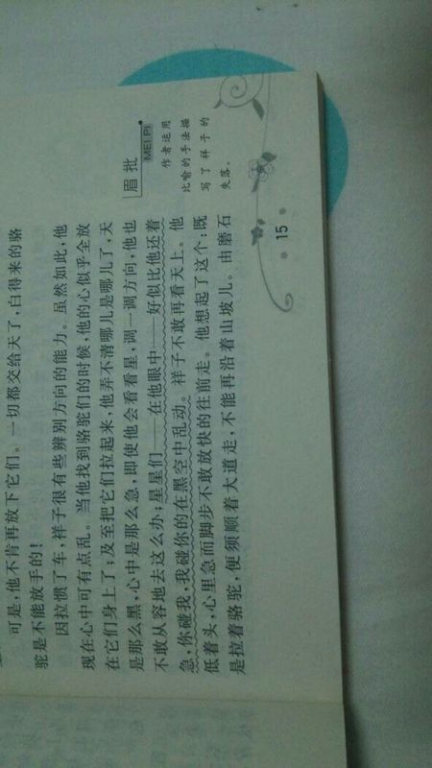 可是,他不肯再放下它们。一切都交给天了,白得来的骆
驼是不能放手的!
因拉惯了车,祥子很有些辨别方向的能力。虽然如此,他
现在心中可有点乱。当他找到骆驼们的时候,他的心似乎全放
在它们身上了;及至把它们拉起来,他弄不清哪儿是哪儿了,天
是那么黑,心中是那么急,即使他会看看星,调一调方向,他也
不敢从容地去这么办;星星们——在他眼中——好似比他还着
急,你碰我,我碰你的在黑空中乱动。祥子不敢再看天上。他
低着头,心里急而脚步不敢放快的往前走。他想起了这个:既
是拉着骆驼,便须顺着大道走,不能再沿着山坡儿。由磨石
眉批
MEI PI
作者运用
比喻的手法描
写了祥子的
失落。
15